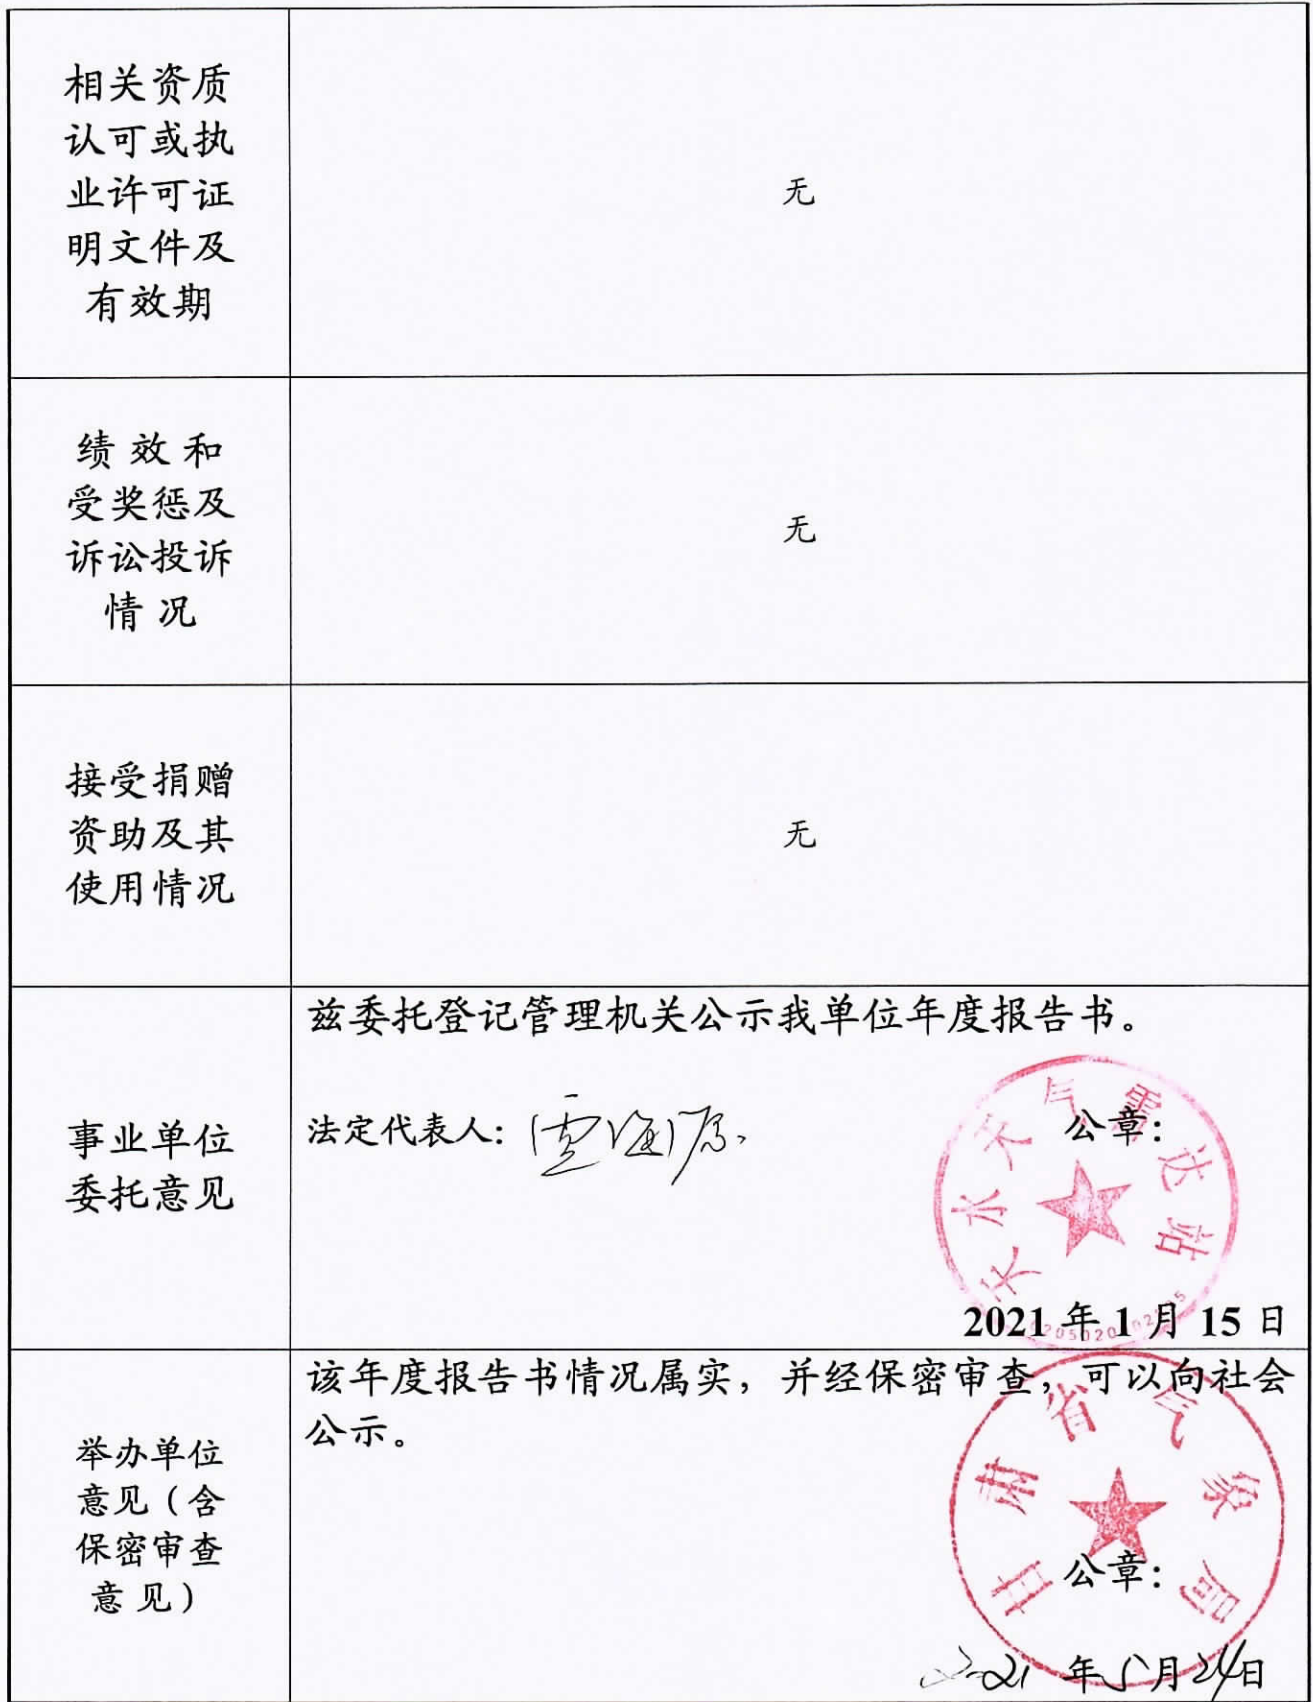 相关资质
认可或执
业许可证
明文件及
有效期
无
绩效和
受奖惩及
诉讼投诉
情况
无
接受捐赠
资助及其
使用情况
无
事业单位
委托意见
兹委托登记管理机关公示我单位年度报告书。
法定代表人：
公章：
天水天气雷达站
2021年1月15日
举办单位
意见（含
保密审查
意见）
该年度报告书情况属实，并经保密审查，可以向社会
公示。
甘肃省气象局
公章：
2021年5月24日